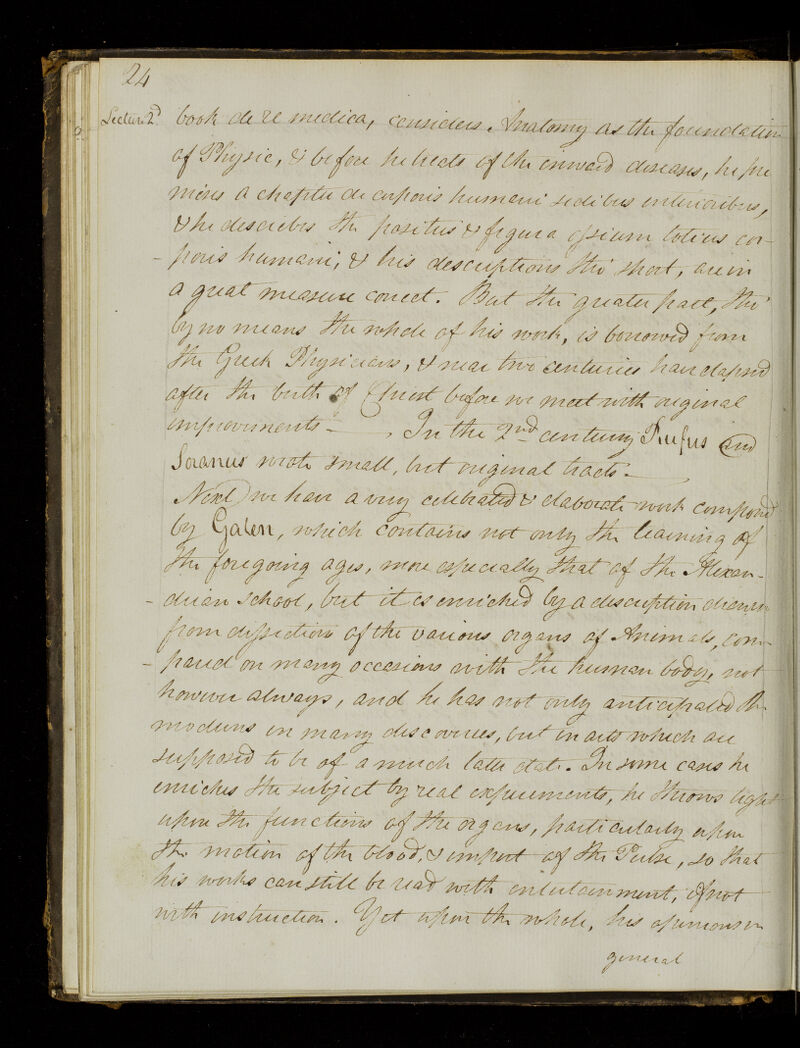 24
Lecture 2d
book de re medica, considers Anatomy as the foundation
of Physic, & before he treats of the inward diseases, he pre
mises a chapter de corporis humani sedibus interioribus,
& he describes the positus & figura ossium totius cor-
- poris humani; & his descriptions tho' short, are in
a great measure correct. But the greater part, tho'
by no means the whole of his work, is borrowed from
the Greek Physicians, & near two centuries have elapsed
after the birth of Christ before we meet with original
improvements — . In the 2nd century Rufus and
Soranus wrote small, but original tracts —
Next) we have a very celebrated & elaborate work composed
by Galen, which contains not only the learning of
the foregoing ages, more especially that of the Alexan-
- drian School, but it is enriched by a description drawn
from dissections of the various organs of Animals, com-
- pared on many occasions with the human body, not
however always, and he has not only anticipated the
moderns in many discoveries, but in arts which are
supposed to be of a much later date. In some cases he
enriches the subject by real experiments, he throws light
upon the functions of the organs, particularly upon
the motion of the blood, & import of the Pulse, so that
his works can still be read with entertainment, if not
with instruction. Yet upon the whole, his opinions in
general